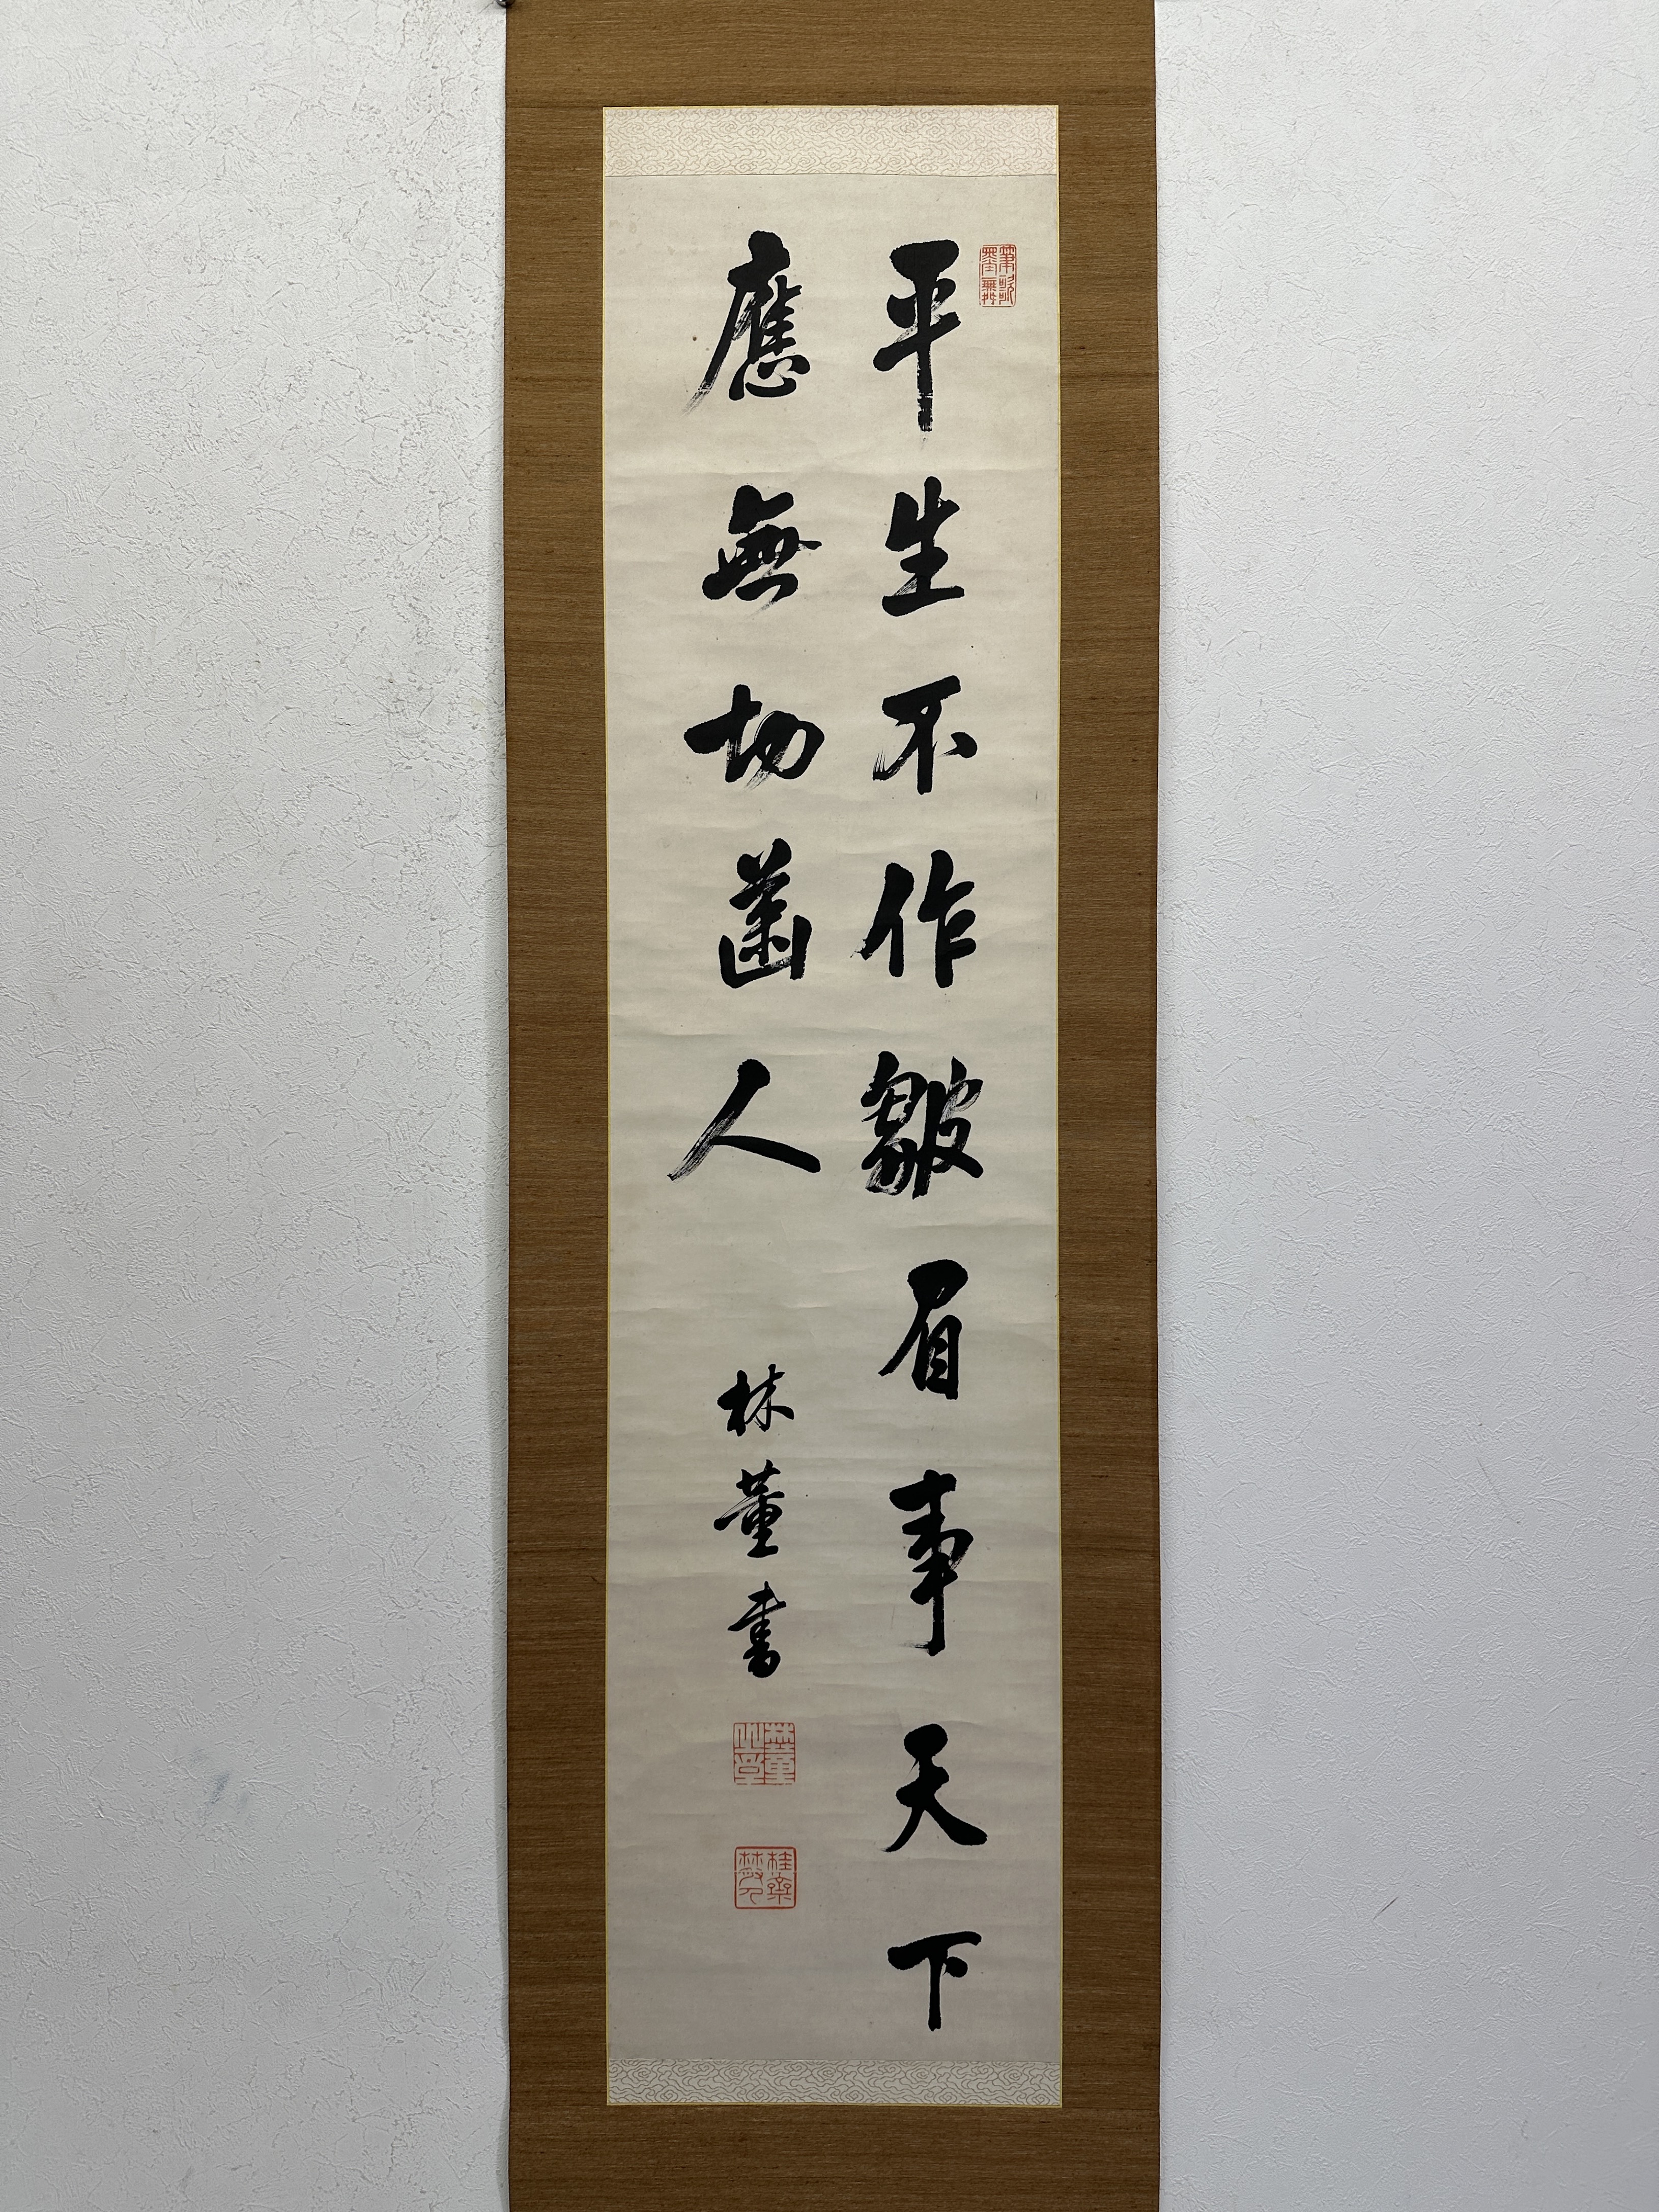 平生不作皺眉事天下
應無切齒人
林董書
林董之印